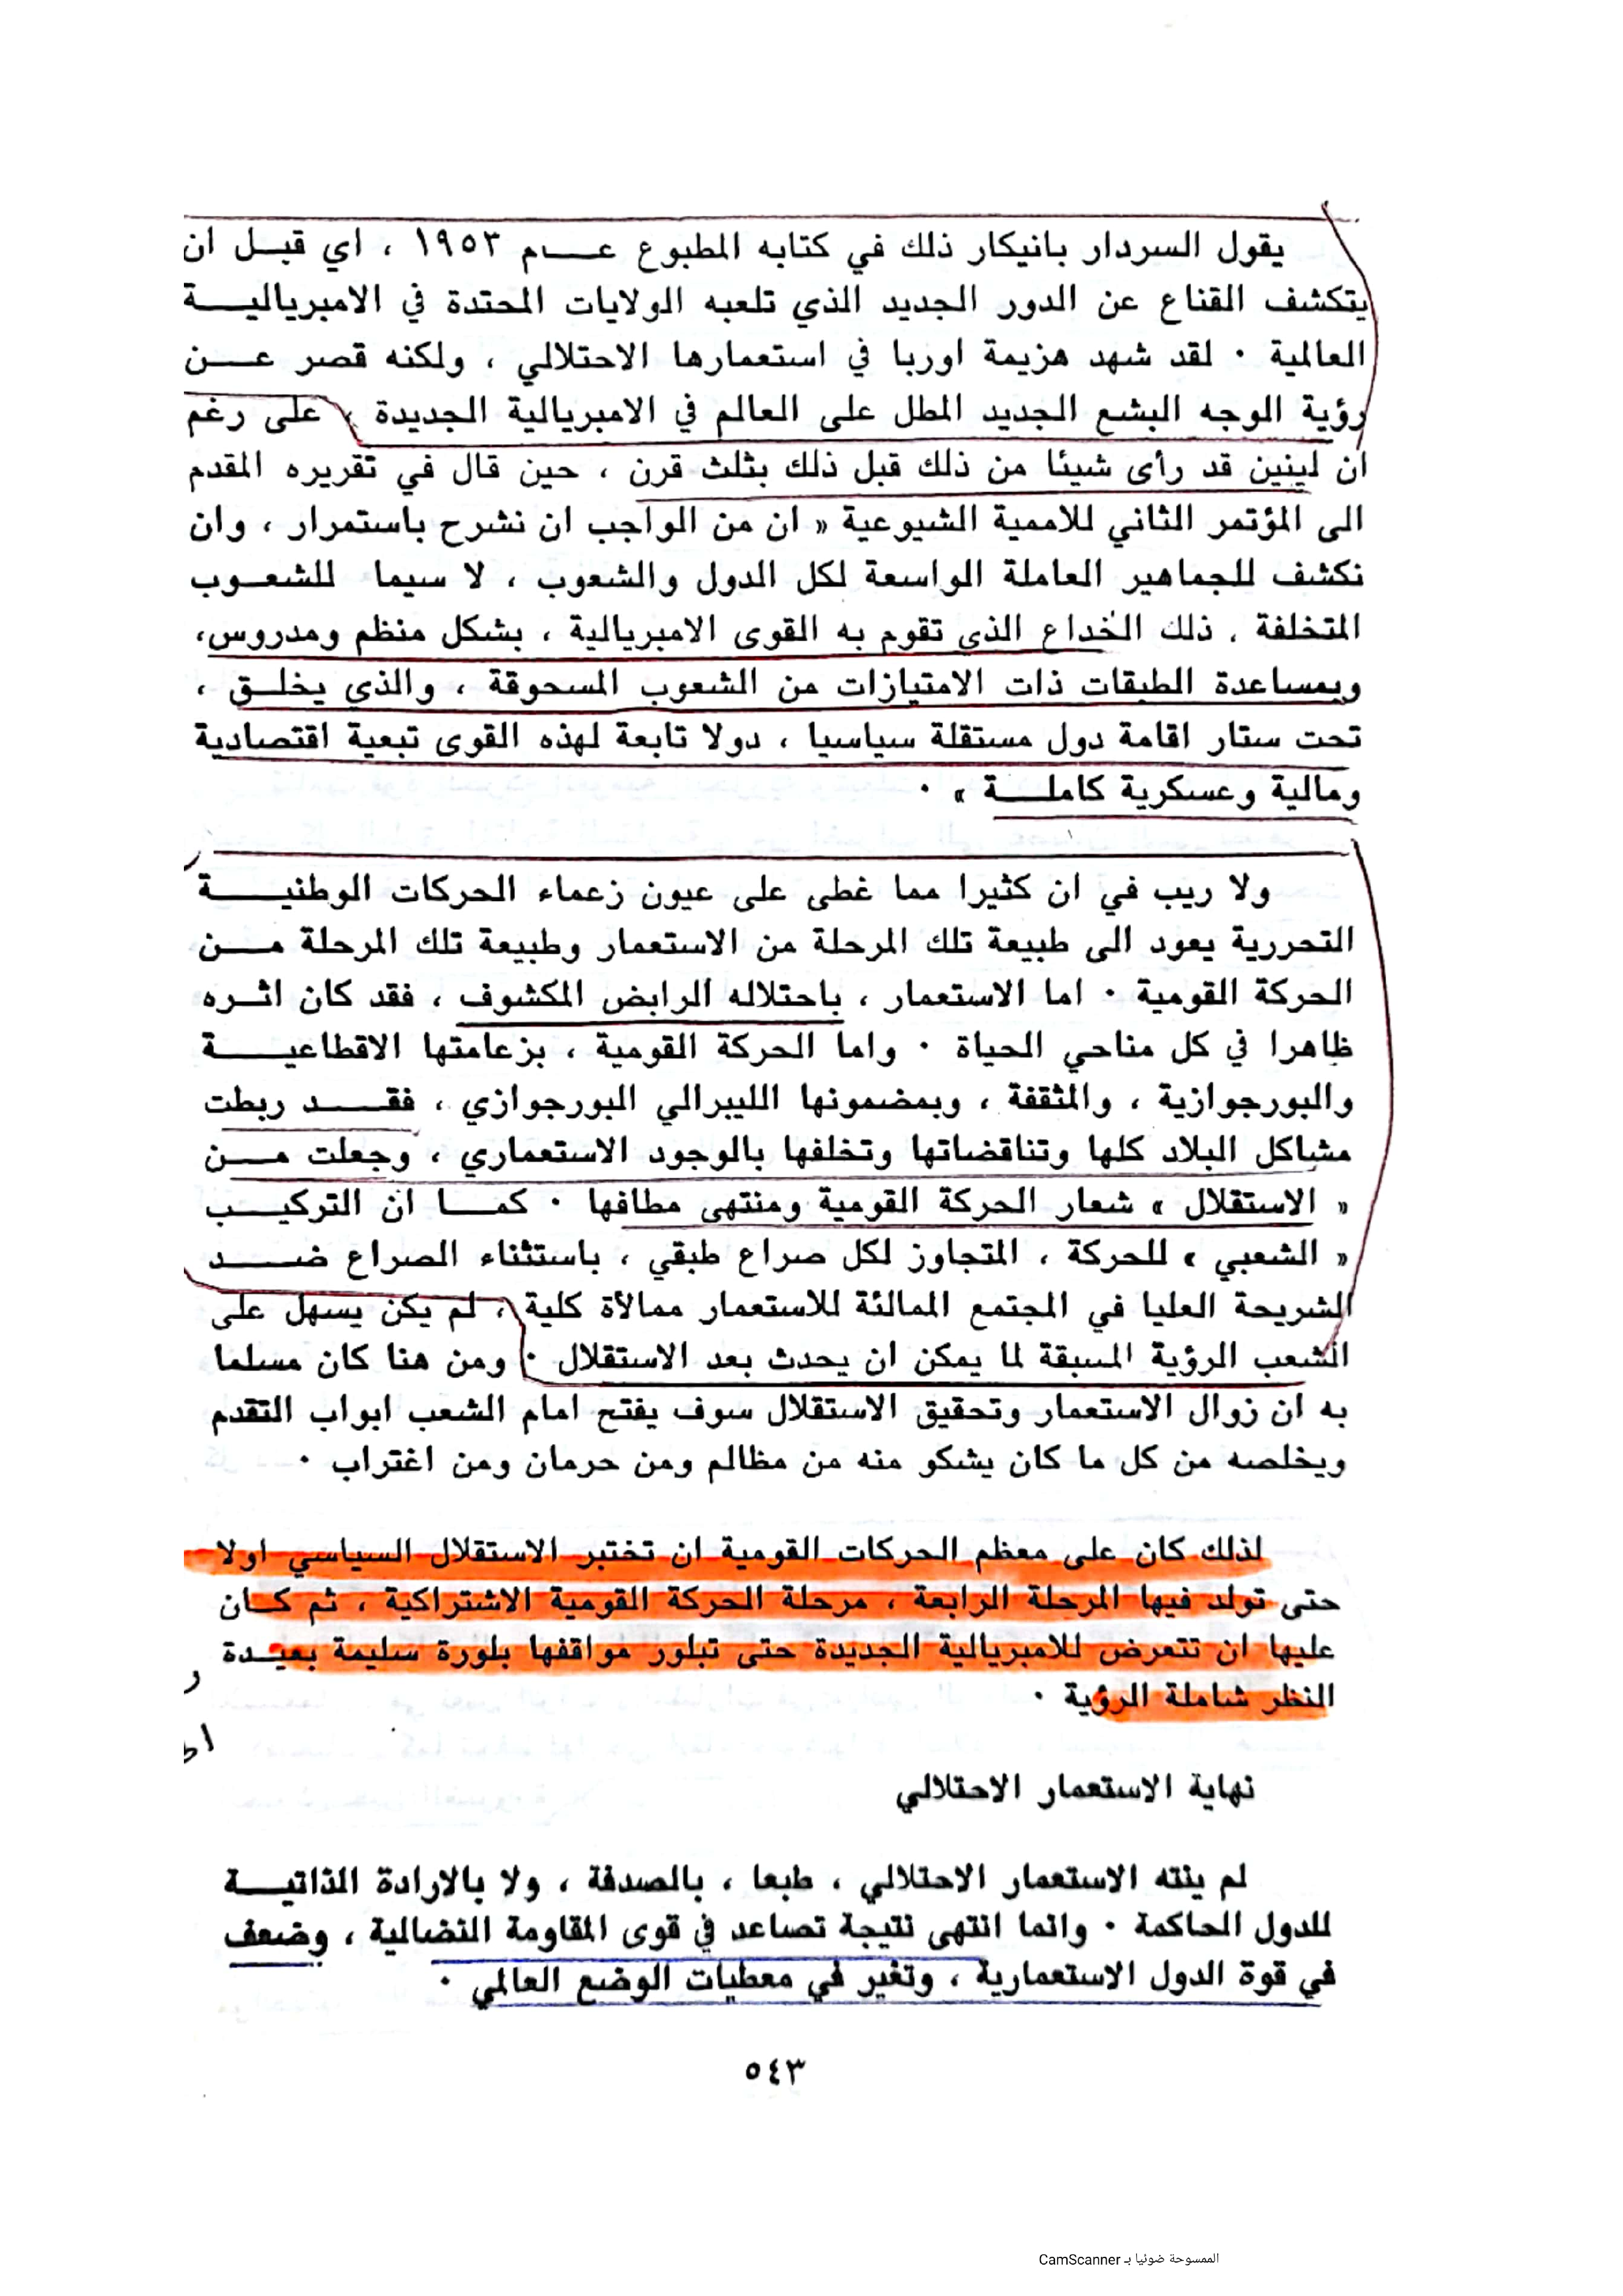 يقول السردار بانيكار ذلك في كتابه المطبوع عـــام ١٩٥٣ ، اي قبـل ان
يتكشف القناع عن الدور الجديد الذي تلعبه الولايات المحتدة في الامبرياليـــة
العالمية ٠ لقد شهد هزيمة اوربا في استعمارها الاحتلالي ، ولكنه قصر عــن
رؤية الوجه البشع الجديد المطل على العالم في الامبريالية الجديدة ، على رغم
ان لينين قد رأى شيئا من ذلك قبل ذلك بثلث قرن ، حين قال في تقريره المقدم
الى المؤتمر الثاني للاممية الشيوعية « ان من الواجب ان نشرح باستمرار ، وان
نكشف للجماهير العاملة الواسعة لكل الدول والشعوب ، لا سيما للشعــوب
المتخلفة ، ذلك الخداع الذي تقوم به القوى الامبريالية ، بشكل منظم ومدروس،
وبمساعدة الطبقات ذات الامتيازات من الشعوب المسحوقة ، والذي يخلــق ،
تحت ستار اقامة دول مستقلة سياسيا ، دولا تابعة لهذه القوى تبعية اقتصادية
ومالية وعسكرية كاملـــة » ٠
ولا ريب في ان كثيرا مما غطى على عيون زعماء الحركات الوطنيـــة
التحررية يعود الى طبيعة تلك المرحلة من الاستعمار وطبيعة تلك المرحلة مــن
الحركة القومية ٠ اما الاستعمار ، باحتلاله الرابض المكشوف ، فقد كان اثـره
ظاهرا في كل مناحي الحياة ٠ واما الحركة القومية ، بزعامتها الاقطاعيـــة
والبورجوازية ، والمثقفة ، وبمضمونها الليبرالي البورجوازي ، فقـــد ربطت
مشاكل البلاد كلها وتناقضاتها وتخلفها بالوجود الاستعماري ، وجعلت مــن
« الاستقلال » شعار الحركة القومية ومنتهى مطافها ٠ كمــا ان التركيــب
« الشعبي » للحركة ، المتجاوز لكل صراع طبقي ، باستثناء الصراع ضـــد
الشريحة العليا في المجتمع الممالئة للاستعمار ممالأة كلية ، لم يكن يسهل على
الشعب الرؤية المسبقة لما يمكن ان يحدث بعد الاستقلال ٠ ومن هنا كان مسلما
به ان زوال الاستعمار وتحقيق الاستقلال سوف يفتح امام الشعب ابواب التقدم
ويخلصه من كل ما كان يشكو منه من مظالم ومن حرمان ومن اغتراب ٠
لذلك كان على معظم الحركات القومية ان تختبر الاستقلال السياسي اولا
حتى تولد فيها المرحلة الرابعة ، مرحلة الحركة القومية الاشتراكية ، ثم كــان
عليها ان تتعرض للامبريالية الجديدة حتى تبلور مواقفها بلورة سليمة بعيـدة
النظر شاملة الرؤية ٠
نهاية الاستعمار الاحتلالي
لم ينته الاستعمار الاحتلالي ، طبعا ، بالصدفة ، ولا بالارادة الذاتيـــة
للدول الحاكمة ٠ وانما انتهى نتيجة تصاعد في قوى المقاومة النضالية ، وضعف
في قوة الدول الاستعمارية ، وتغير في معطيات الوضع العالمي ٠
٥٤٣
الممسوحة ضوئيا بـ CamScanner